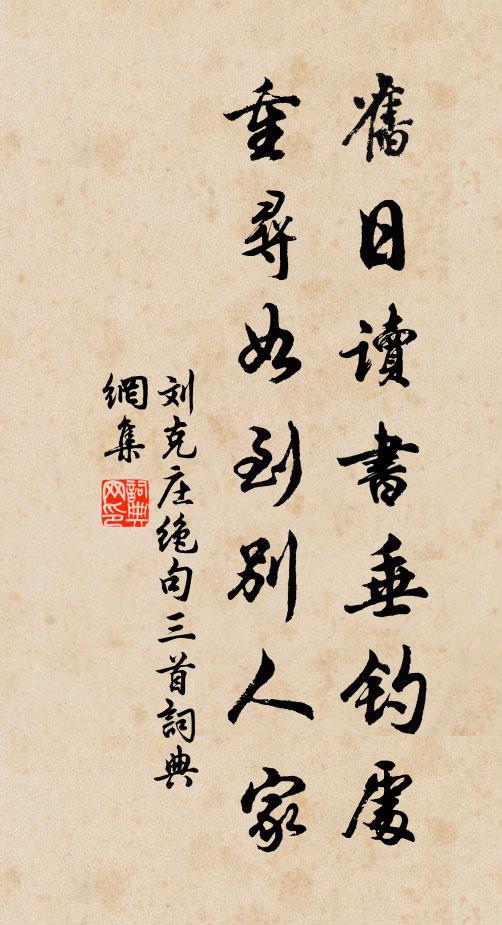 舊日讀書垂釣處
重尋如到別人家
刘克庄绝句三首詞典
網集
詞典
网印